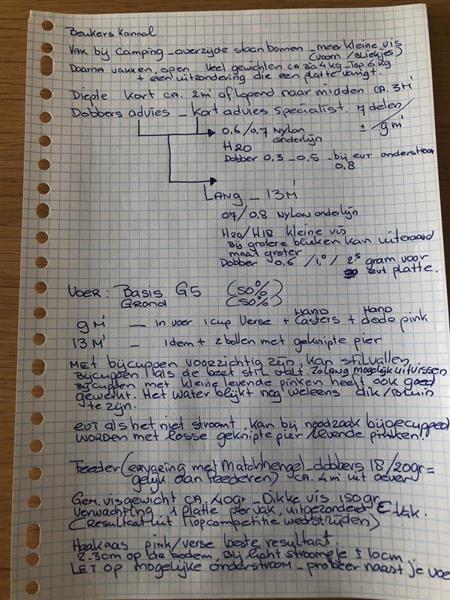 Beukers Kanaal
Vak bij camping - overzijde staan bomen - meer kleine vis
(voorn / bliekjes)
Daarna vakken, open veel gewichten ca 3 a 4 kg - Top 6 kg
+ een uitzondering die een platte vangt.
Diepte kort ca. 2m aflopend naar midden ca. 3M'
Dobbers advies - kort advies specialist. 7 delen
± 9 m'
0.6/0.7 Nylon onderlijn
H20
Dobber 0.3 - 0.5 - bij evt onderstroom
0.8
LANG - 13M'
07/0.8 Nylon onderlijn
H20/H18 kleine vis
Bij grotere blieken kan uiteraard
maat groter
Dobber 0.6 / 1.0 / 2.5 gram voor
evt platte.
Voer: Basis G5 (50%)
Grond (50%)
9M' - In voer 1 cup Verse + HAND Casters + HAND dode pink
13M' - Idem + 2 bollen met geknipte pier
Met bijcuppen voorzichtig zijn, kan stilvallen
Bijcuppen als de beet stil valt. Zolang mogelijk uitvissen
Bijcuppen met kleine levende pinken heeft ook goed
gewerkt. Het water blijkt nog weleens dik/bruin
te zijn.
Evt als het niet stroomt, kan bij noodzaak bijgecupped
worden met losse geknipte pier/levende pinken!
Feeder (ervaring met Matchhengel - dobbers 18/20gr =
gelijk aan feederen) ca. 4m uit oever
Gem. visgewicht ca. 40gr - Dikke vis 150gr
Verwachting 1 platte per vak, uitgezonderd
(Resultaat uit Topcompetitie wedstrijden)
Haakaas pink/verse beste resultaat.
2-3cm op de bodem. Bij licht stroompje ± 10cm
LET op mogelijke onderstroom - probeer naast je voer